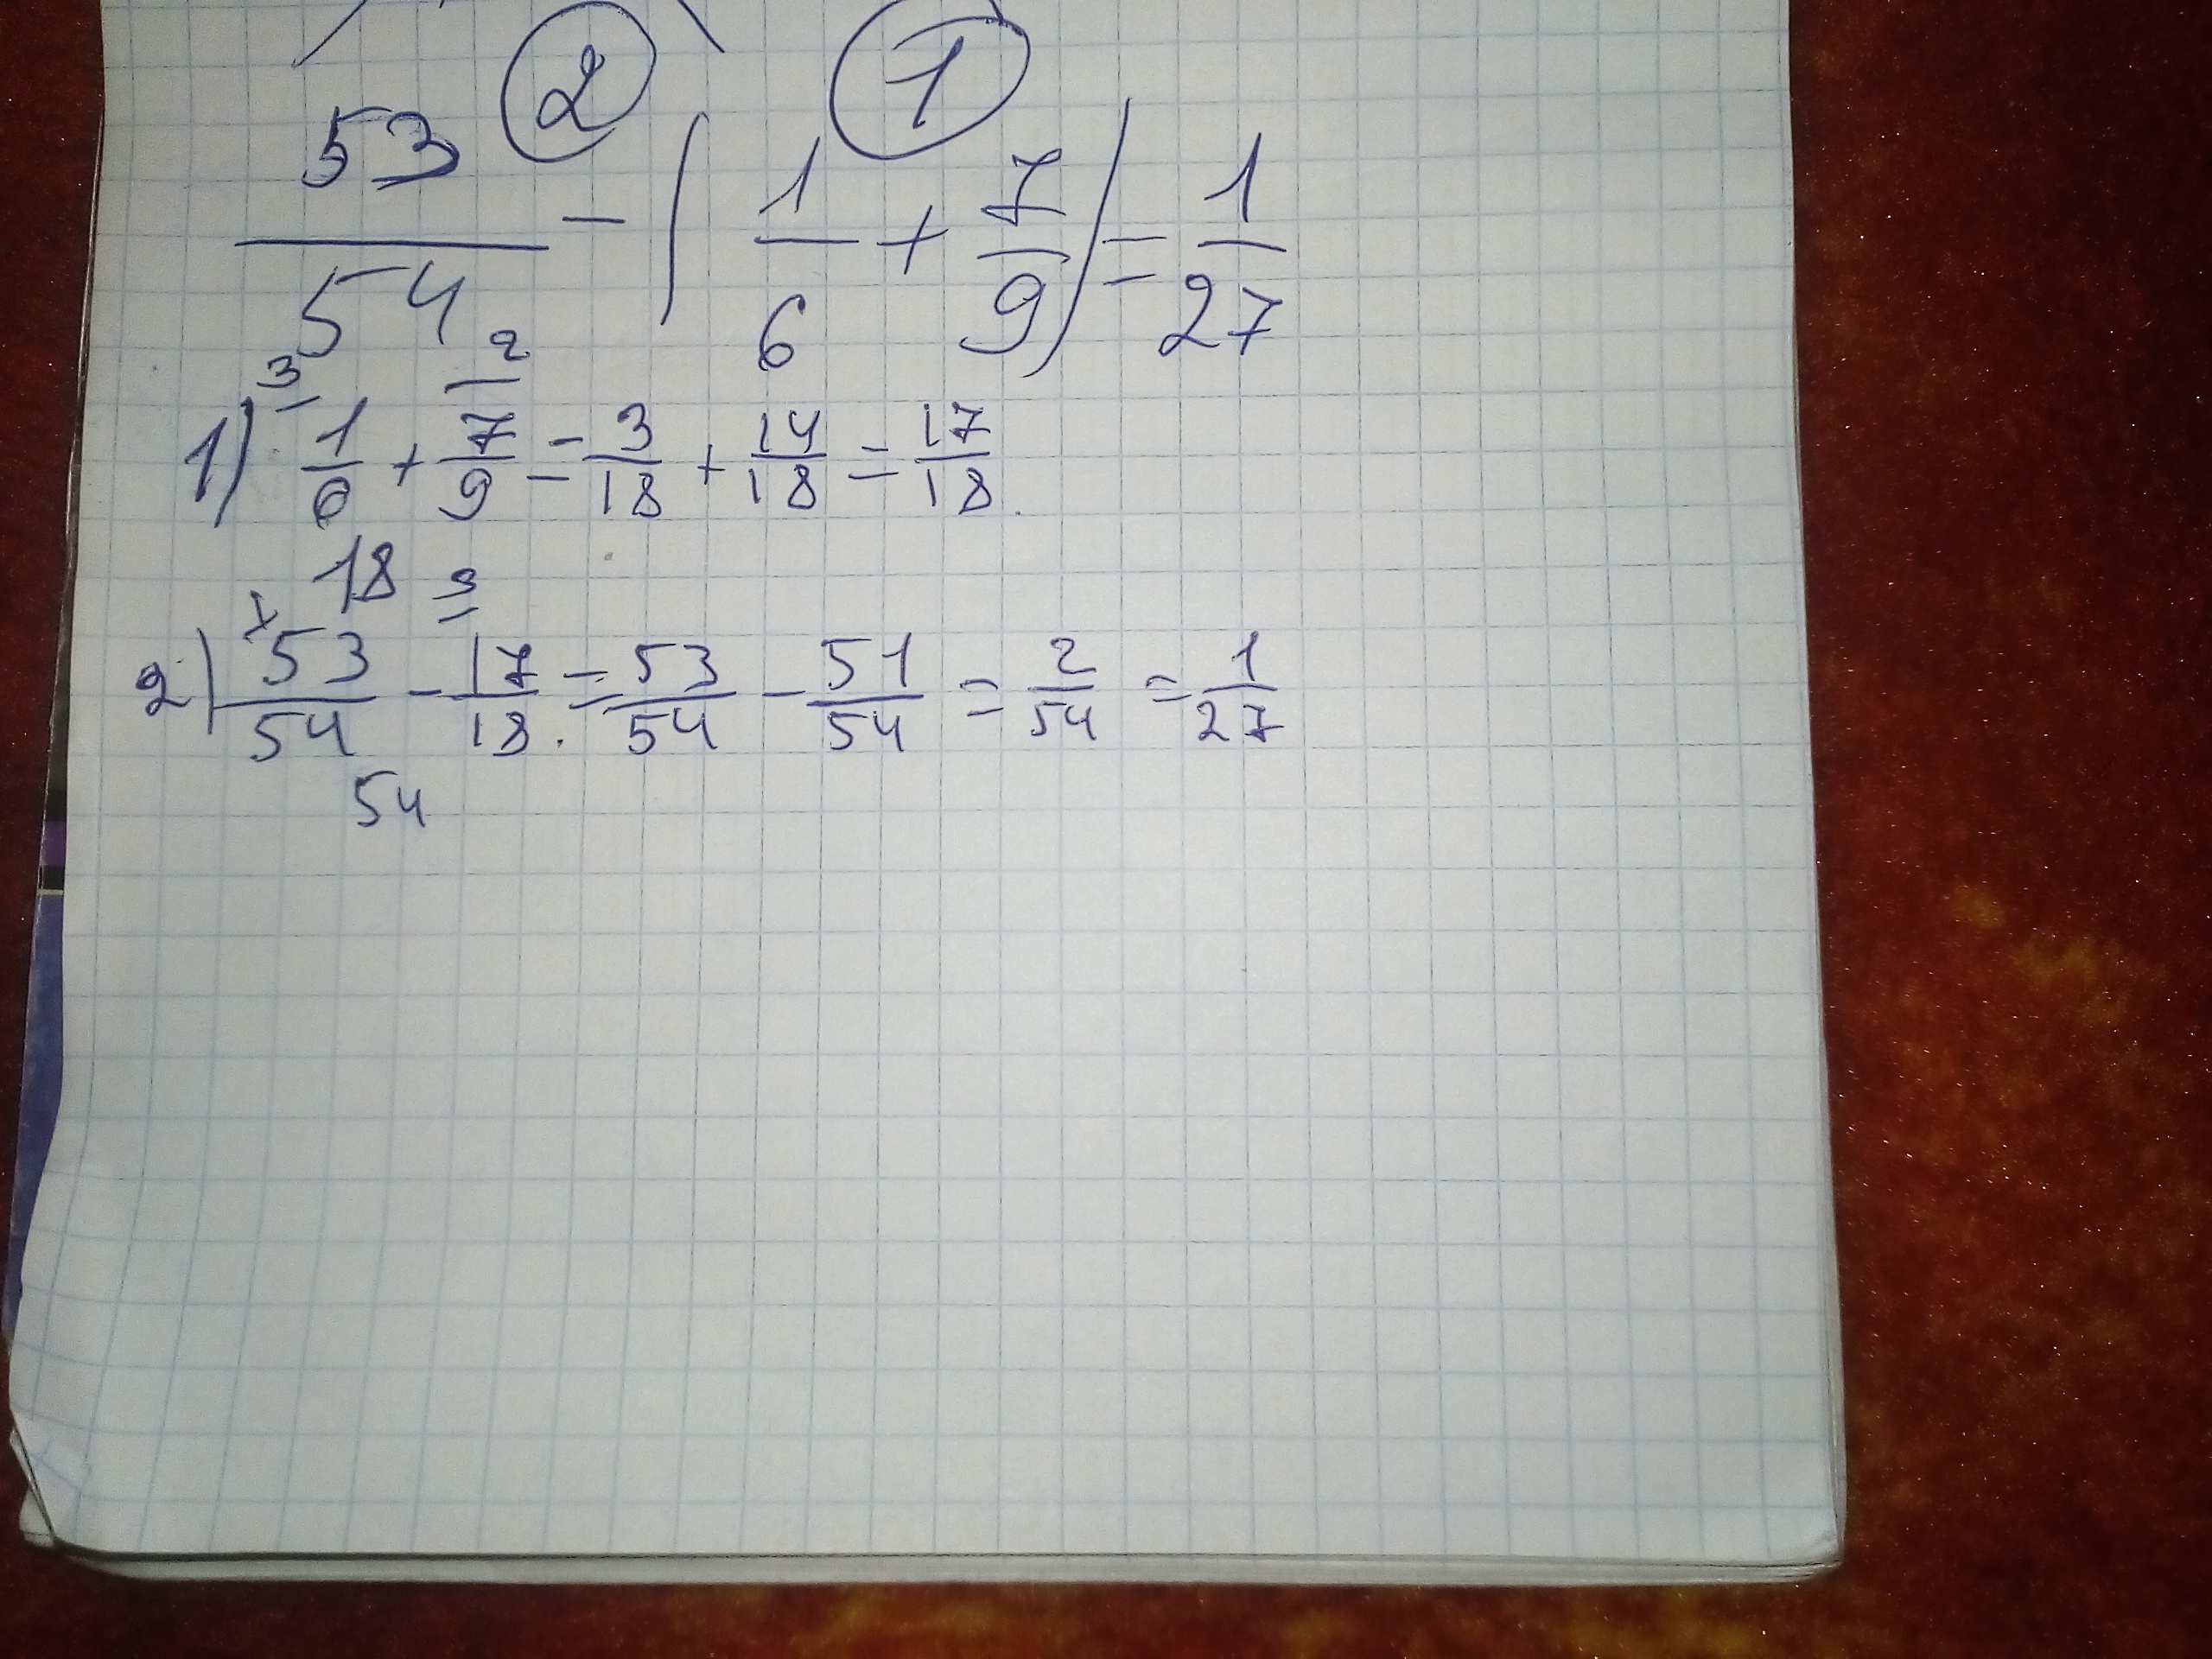 2 1
53/54 - (1/6 + 7/9) = 1/27
3 2
1) 1/6 + 7/9 = 3/18 + 14/18 = 17/18.
18 3
2) 53/54 - 17/18. = 53/54 - 51/54 = 2/54 = 1/27
54